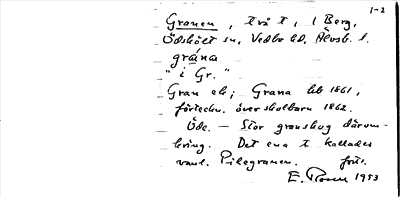 1-2
Granen, två t, 1 Berg,
Ödskölt sn, Vedbo hd, Älvsb. l.
grána
"i Gr."
Gran eb; Grana hb 1861,
förteckn. över skolbarn 1862.
Öde. — Stor granskog därom-
kring. Det ena t kallades
vanl. Pilegranen. förr.
E. Rosen 1953